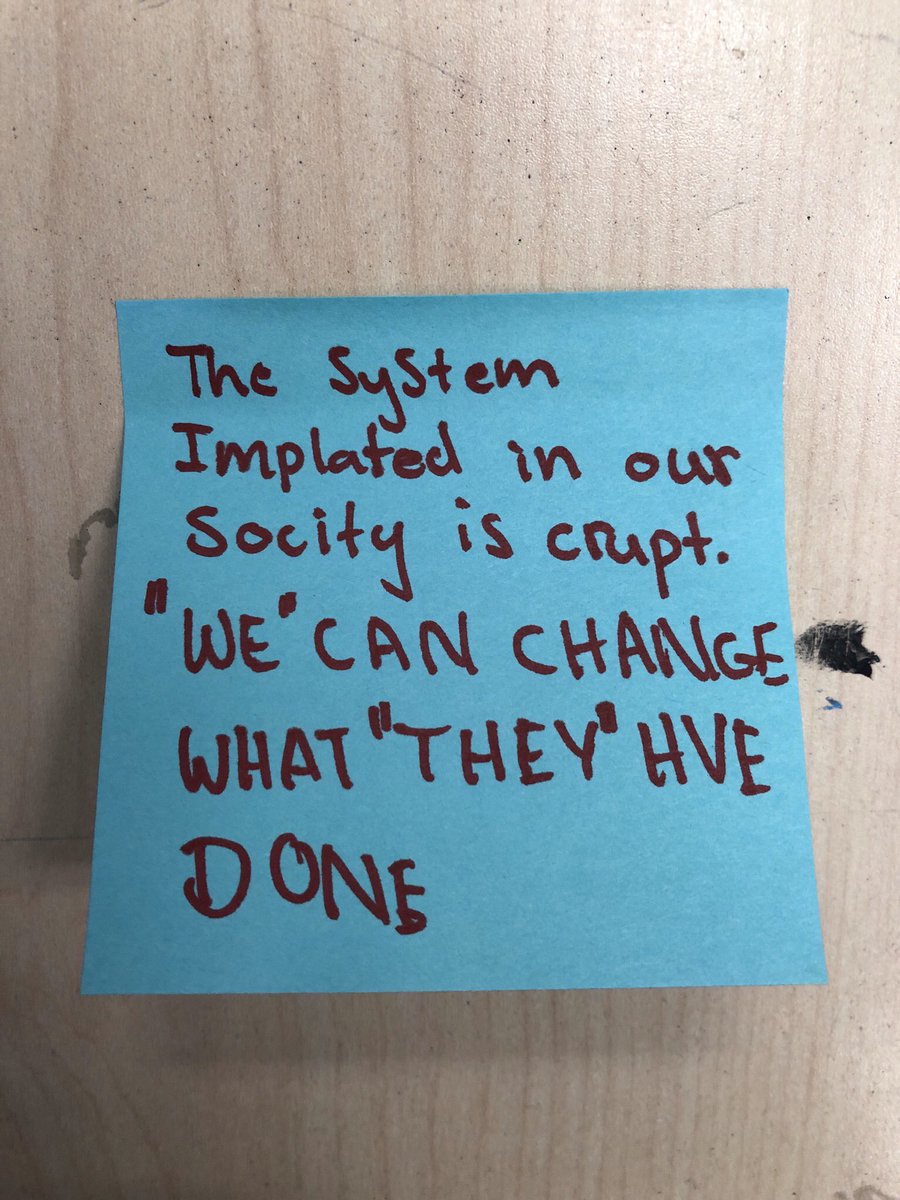 The System
Implated in our
Socity is crupt.
"WE" CAN CHANGE
WHAT "THEY" HVE
DONE